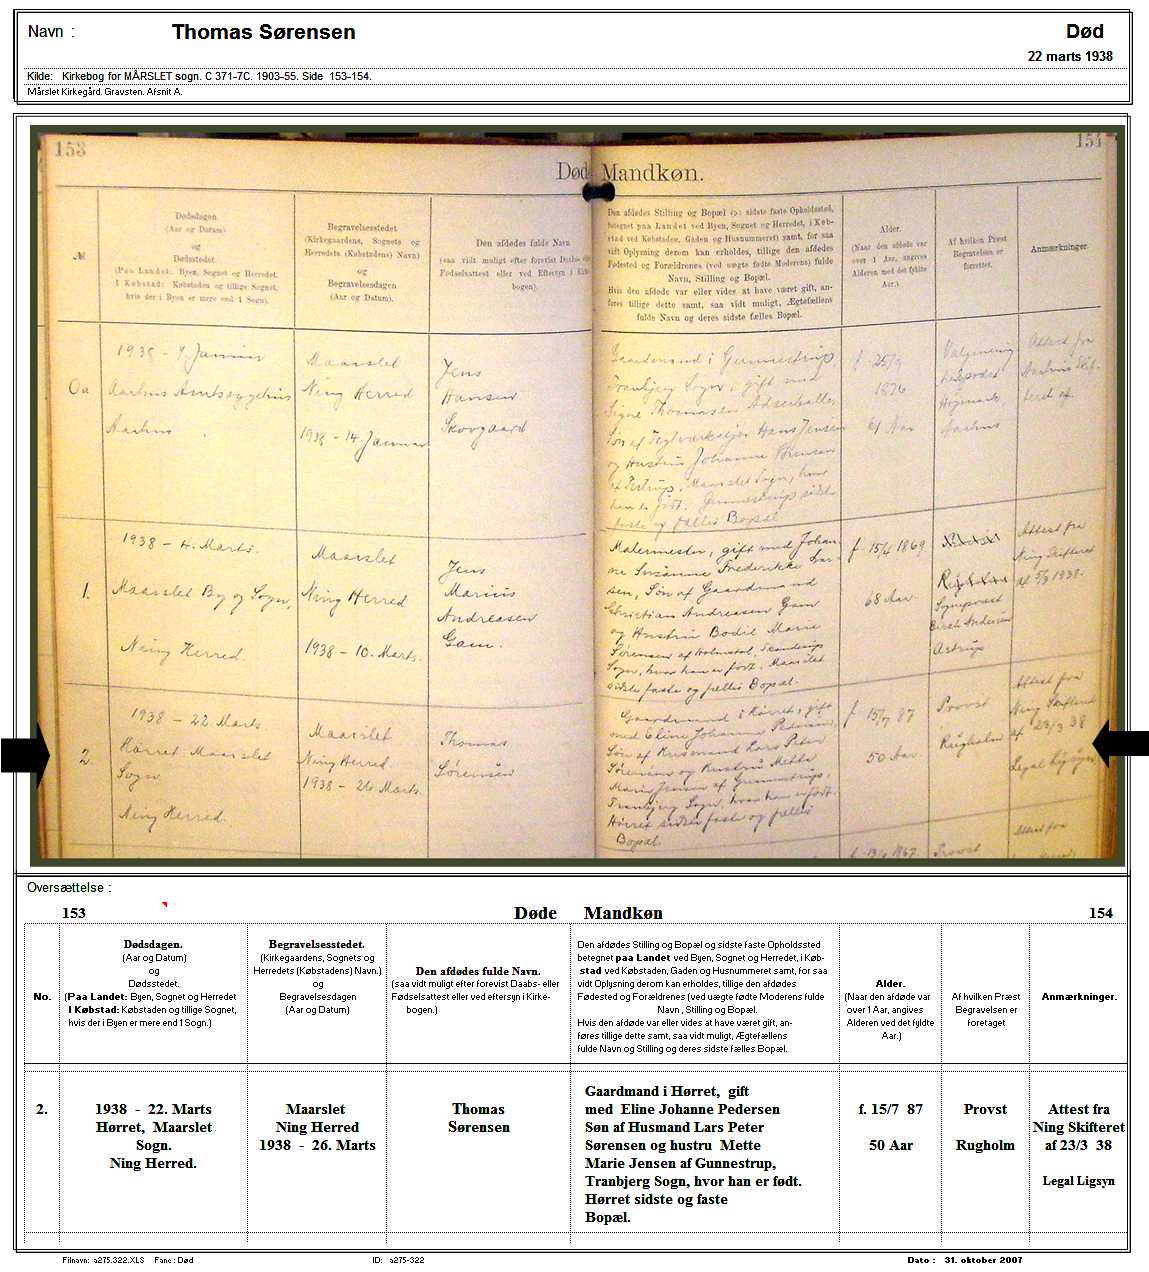 Navn :
Thomas Sørensen
Død
22 marts 1938
Kilde: Kirkebog for MÅRSLET sogn. C 371-7C. 1903-55. Side 153-154.
Mårslet Kirkegård. Gravsten. Afsnit A.
153
154
Død Mandkøn.
№
Dødsdagen
(Aar og Datum)
og
Dødsstedet.
(Paa Landet: Byen, Sognet og Herredet.
I Købstad: Købstaden og tillige Sognet,
hvis der i Byen er mere end 1 Sogn).
Begravelsesstedet
(Kirkegaardens, Sognets og
Herredets (Købstadens) Navn)
og
Begravelsesdagen
(Aar og Datum).
Den afdødes fulde Navn
(saa vidt muligt efter forevist Daabs- el
Fødselsattest eller ved Eftersyn i Kirk
bogen).
Den afdødes Stilling og Bopæl (ɔ: sidste faste Opholdssted,
betegnet paa Landet ved Byen, Sognet og Herredet, i Køb-
stad ved Købstaden, Gaden og Husnummeret) samt, for saa
vidt Oplysning derom kan erholdes, tillige den afdødes
Fødested og Forældrenes (ved uægte fødte Moderens) fulde
Navn, Stilling og Bopæl.
Hvis den afdøde var eller vides at have været gift, an-
føres tillige dette samt, saa vidt muligt, Ægtefællens
fulde Navn og deres sidste fælles Bopæl.
Alder.
(Naar den afdøde var
over 1 Aar, angives
Alderen med det fyldte
Aar.)
Af hvilken Præst
Begravelsen er
forrettet.
Anmærkninger.
0a
1938 - 9. Januar
Aarhus Amtssygehus
Aarhus
Maarslet
Ning Herred
1938 - 14. Januar
Jens
Hansen
Skovgaard
Gaardmand i Gunnestrup,
Tranbjerg Sogn, gift med
Signe Thomasen Adserballe,
Søn af Teglværksejer Hans Jensen
og Hustru Johanne
af Testrup, Maarslet Sogn, hvor
han er født. Gunnestrup sidste
faste og fælles Bopæl
f. 25/9
1876
61 Aar
Valgmenigheds
præst
Højmark,
Aarhus
Attest fra
Aarhus Skif-
teret af
1.
1938 - 4. Marts.
Maarslet By og Sogn,
Ning Herred.
Maarslet
Ning Herred
1938 - 10. Marts.
Jens
Marius
Andreasen
Gam.
Malermester, gift med Johan-
ne Susanne Frederikke Lar-
sen, Søn af Gaardmand
Christian Andreasen Gam
og Hustru Bodil Marie
Sørensen af Holmstol,
Sogn, hvor han er født. Maarslet
sidste faste og fælles Bopæl.
f. 15/4 1869
68 Aar.
Sognepræst
Birch Andersen
Astrup
Attest fra
Ning Skifteret
af 5/3 1938.
2.
1938 - 22 Marts.
Hørret Maarslet
Sogn
Ning Herred.
Maarslet
Ning Herred.
1938 - 26. Marts.
Thomas
Sørensen
Gaardmand i Hørret, gift
med Eline Johanne Pedersen,
Søn af Husmand Lars Peter
Sørensen og Hustru Mette
Marie Jensen af Gunnestrup,
Tranbjerg Sogn, hvor han er født.
Hørret sidste faste og fælles
Bopæl
f. 15/7 87
50 Aar.
Provst
Rugholm
Attest fra
Ning Skifteret
af 23/3 38
Legal Ligsyn
f. 13/4 1867.
Provst
Attest fra
Oversættelse :
153
Døde Mandkøn
154
No.
Dødsdagen.
(Aar og Datum)
og
Dødsstedet.
(Paa Landet: Byen, Sognet og Herredet
I Købstad: Købstaden og tillige Sognet,
hvis der i Byen er mere end 1 Sogn.)
Begravelsesstedet.
(Kirkegaardens, Sognets og
Herredets (Købstadens) Navn.)
og
Begravelsesdagen
(Aar og Datum)
Den afdødes fulde Navn.
(saa vidt muligt efter forevist Daabs- eller
Fødselsattest eller ved eftersyn i Kirke-
bogen.)
Den afdødes Stilling og Bopæl og sidste faste Opholdssted
betegnet paa Landet ved Byen, Sognet og Herredet, i Køb-
stad ved Købstaden, Gaden og Husnummeret) samt, for saa
vidt Oplysning derom kan erholdes, tillige den afdødes
Fødested og Forældrenes (ved uægte fødte Moderens fulde
Navn , Stilling og Bopæl.
Hvis den afdøde var eller vides at have været gift, an-
føres tillige dette samt, saa vidt muligt, Ægtefællens
fulde Navn og Stilling og deres sidste fælles Bopæl.
Alder.
(Naar den afdøde var
over 1 Aar, angives
Alderen ved det fyldte
Aar.)
Af hvilken Præst
Begravelsen er
foretaget
Anmærkninger.
2.
1938 - 22. Marts
Hørret, Maarslet
Sogn.
Ning Herred.
Maarslet
Ning Herred
1938 - 26. Marts
Thomas
Sørensen
Gaardmand i Hørret, gift
med Eline Johanne Pedersen
Søn af Husmand Lars Peter
Sørensen og hustru Mette
Marie Jensen af Gunnestrup,
Tranbjerg Sogn, hvor han er født.
Hørret sidste og faste
Bopæl.
f. 15/7 87
50 Aar
Provst
Rugholm
Attest fra
Ning Skifteret
af 23/3 38
Legal Ligsyn
Filnavn: a275,322.XLS Fane : Død
ID: a275-322
Dato : 31. oktober 2007